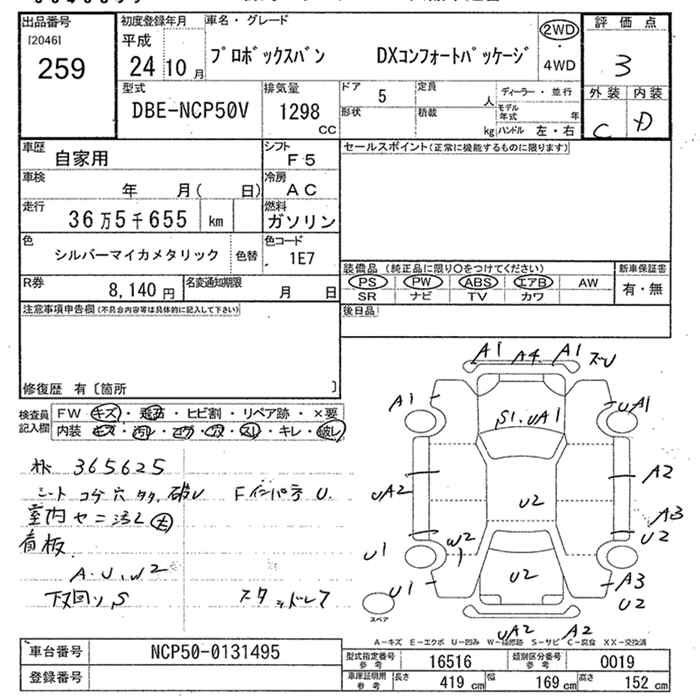 出品番号
[2046]
259
初度登録年月
平成
24 10 月
車名・グレード
プロボックスバン DXコンフォートパッケージ
2WD
・
4WD
評価点
3
外装 内装
C D
型式
DBE-NCP50V
排気量
1298
CC
ドア
5
形状
定員
人
積載
kg
ディーラー・並行
モデル年式 年
ハンドル 左・右
車歴
自家用
シフト
F5
車検
年 月( 日)
冷房
AC
走行
36万5千655 km
燃料
ガソリン
色
シルバーマイカメタリック
色替
色コード
1E7
R券
8,140 円
名変通知期限
月 日
セールスポイント(正常に機能するものに限ります)
装備品 (純正品に限り○をつけてください)
PS PW ABS エアB AW
SR ナビ TV カワ
新車保証書
有・無
後日品
注意事項申告欄(不具合内容等は具体的に記入して下さい)
修復歴 有〔箇所 〕
検査員記入欄
FW キズ・飛石・ヒビ割・リペア跡・×要
内装 キズ・汚レ・コゲ・穴・スレ・キレ・破レ
365625
シート コゲ 穴 破レ Fインパネ U.
室内ヤニ汚レ大
看板
A.U.W2
下回り.S スタッドレス
A1 A4 A1 ズレ
A1
S1.UA1
UA1
UA2
A2
U2
A3
U2
U1
W2
U1
U2
A3
U2
UA2 A2
スペア
A-キズ E-エクボ U-凹み W-補修跡 S-サビ C-腐食 XX-交換済
車台番号
NCP50-0131495
登録番号
型式指定番号 参考
16516
類別区分番号 参考
0019
車庫証明用 参考
長さ 419 cm
幅 169 cm
高さ 152 cm